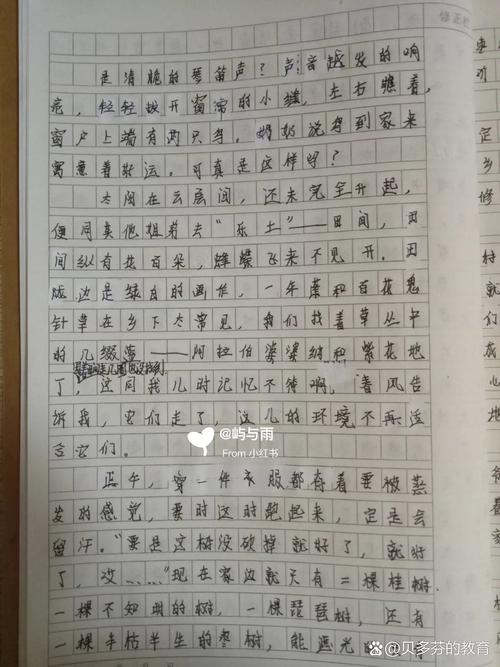 修正栏
是清脆的琴笛声？声音越发的响
亮，轻轻拨开窗帘的小缝，左右瞧着，
窗户上端有两只鸟，奶奶说鸟到家来
寓意着好运。可真是这样吗？
太阳在云层间，还未完全升起，
便同其他姐弟去“乐土”——田间，田
间纵有花百朵，蜂蝶飞来不见开。田
边是绿白的画作，一年蓬和百花鬼
针草在乡下太常见，我们找着草丛中
的几缀蓝——阿拉伯婆婆纳和紫花地
了，这同我儿时记忆不符啊，春风告
诉我，它们走了，这儿的环境不再适
合它们。
@屿与雨
From 小红书
正午，穿一件衣服都有着要被蒸
发的感觉，要时这时跑起来，定是会
留汗。“要是这树没砍掉就好了，就好
了，没……”现在家边就只有二棵桂树，
一棵不知明的树，一棵琵琶树，还有
一棵半枯半生的枣树，能遮光的
@贝多芬的教育